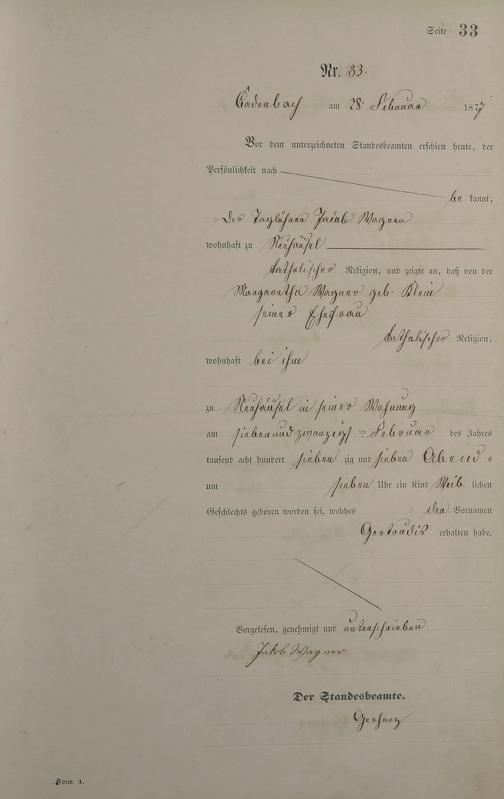 Seite 33
Nr. 33.
Cadenbach am 28 Februar 1877
Vor dem unterzeichneten Standesbeamten erschien heute, der
Persönlichkeit nach
be kannt,
der Taglöhner Jacob Wagner
wohnhaft zu Neuhäusel
katholischer Religion, und zeigte an, daß von der
Margaretha Wagner geb. Klein
seiner Ehefrau
katholischer Religion,
wohnhaft bei ihm
zu Neuhäusel in seiner Wohnung
am siebenundzwanzigst en Februar des Jahres
tausend acht hundert sieben zig und sieben Abend s
um sieben Uhr ein Kind Weib lichen
Geschlechts geboren worden sei, welches den Vornamen
Gertrudis erhalten habe.
Vorgelesen, genehmigt und unterschrieben
Jakob Wagner
Der Standesbeamte.
Gerharz
Form. A.